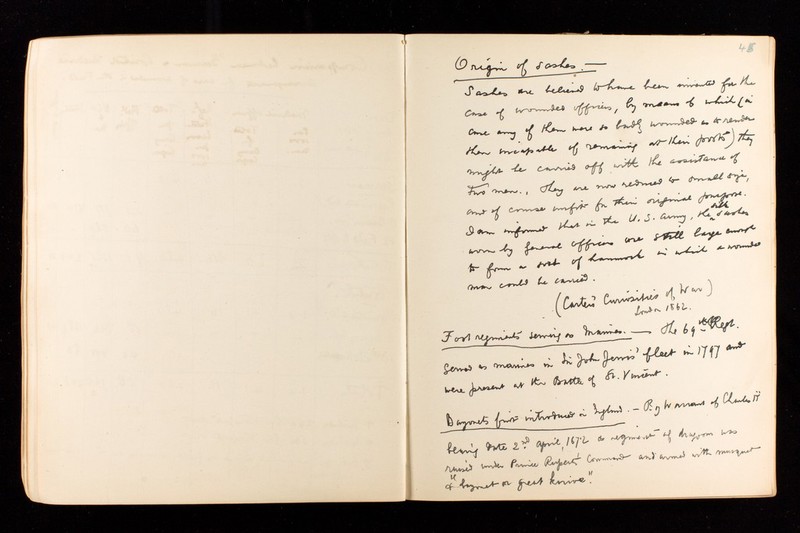 48
Origin of Sashes. —
Sashes are believed to have been invented for the
case of wounded officers, by means of which (in
case any of them were so badly wounded as to render
them incapable of remaining at their posts) they
might be carried off with the assistance of
two men. They are now reduced to small size,
and of course unfit for their original purpose.
I am informed that in the U. S. Army, the silk sashes
worn by general officers are still large enough
to form a sort of hammock in which a wounded
man could be carried.
(Carter's Curiosities of War)
London 1862.
Foot regiments serving as Marines. — The 69th Regt.
served as marines in Sir John Jervis' fleet in 1797 and
were present at the Battle of St. Vincent.
Bayonets first introduced in England. — By Warrant of Charles II
being date 2nd April, 1672 a regiment of dragoons was
raised under Prince Rupert's Command and armed with musquet
& "bayonet or great knive".